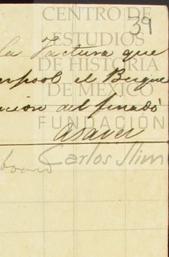 CENTRO DE
ESTUDIOS
DE HISTORIA
DE MÉXICO
39
la Factura que
erpool el Buque
ción del finado
FUNDACIÓN
a saver
Carlos Slim